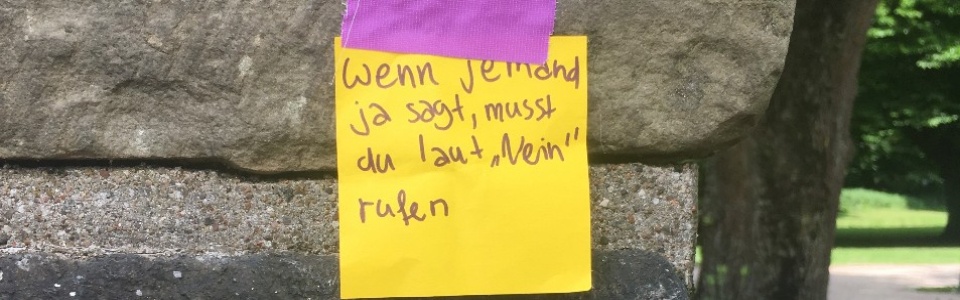 Wenn jemand
ja sagt, musst
du laut „Nein"
rufen